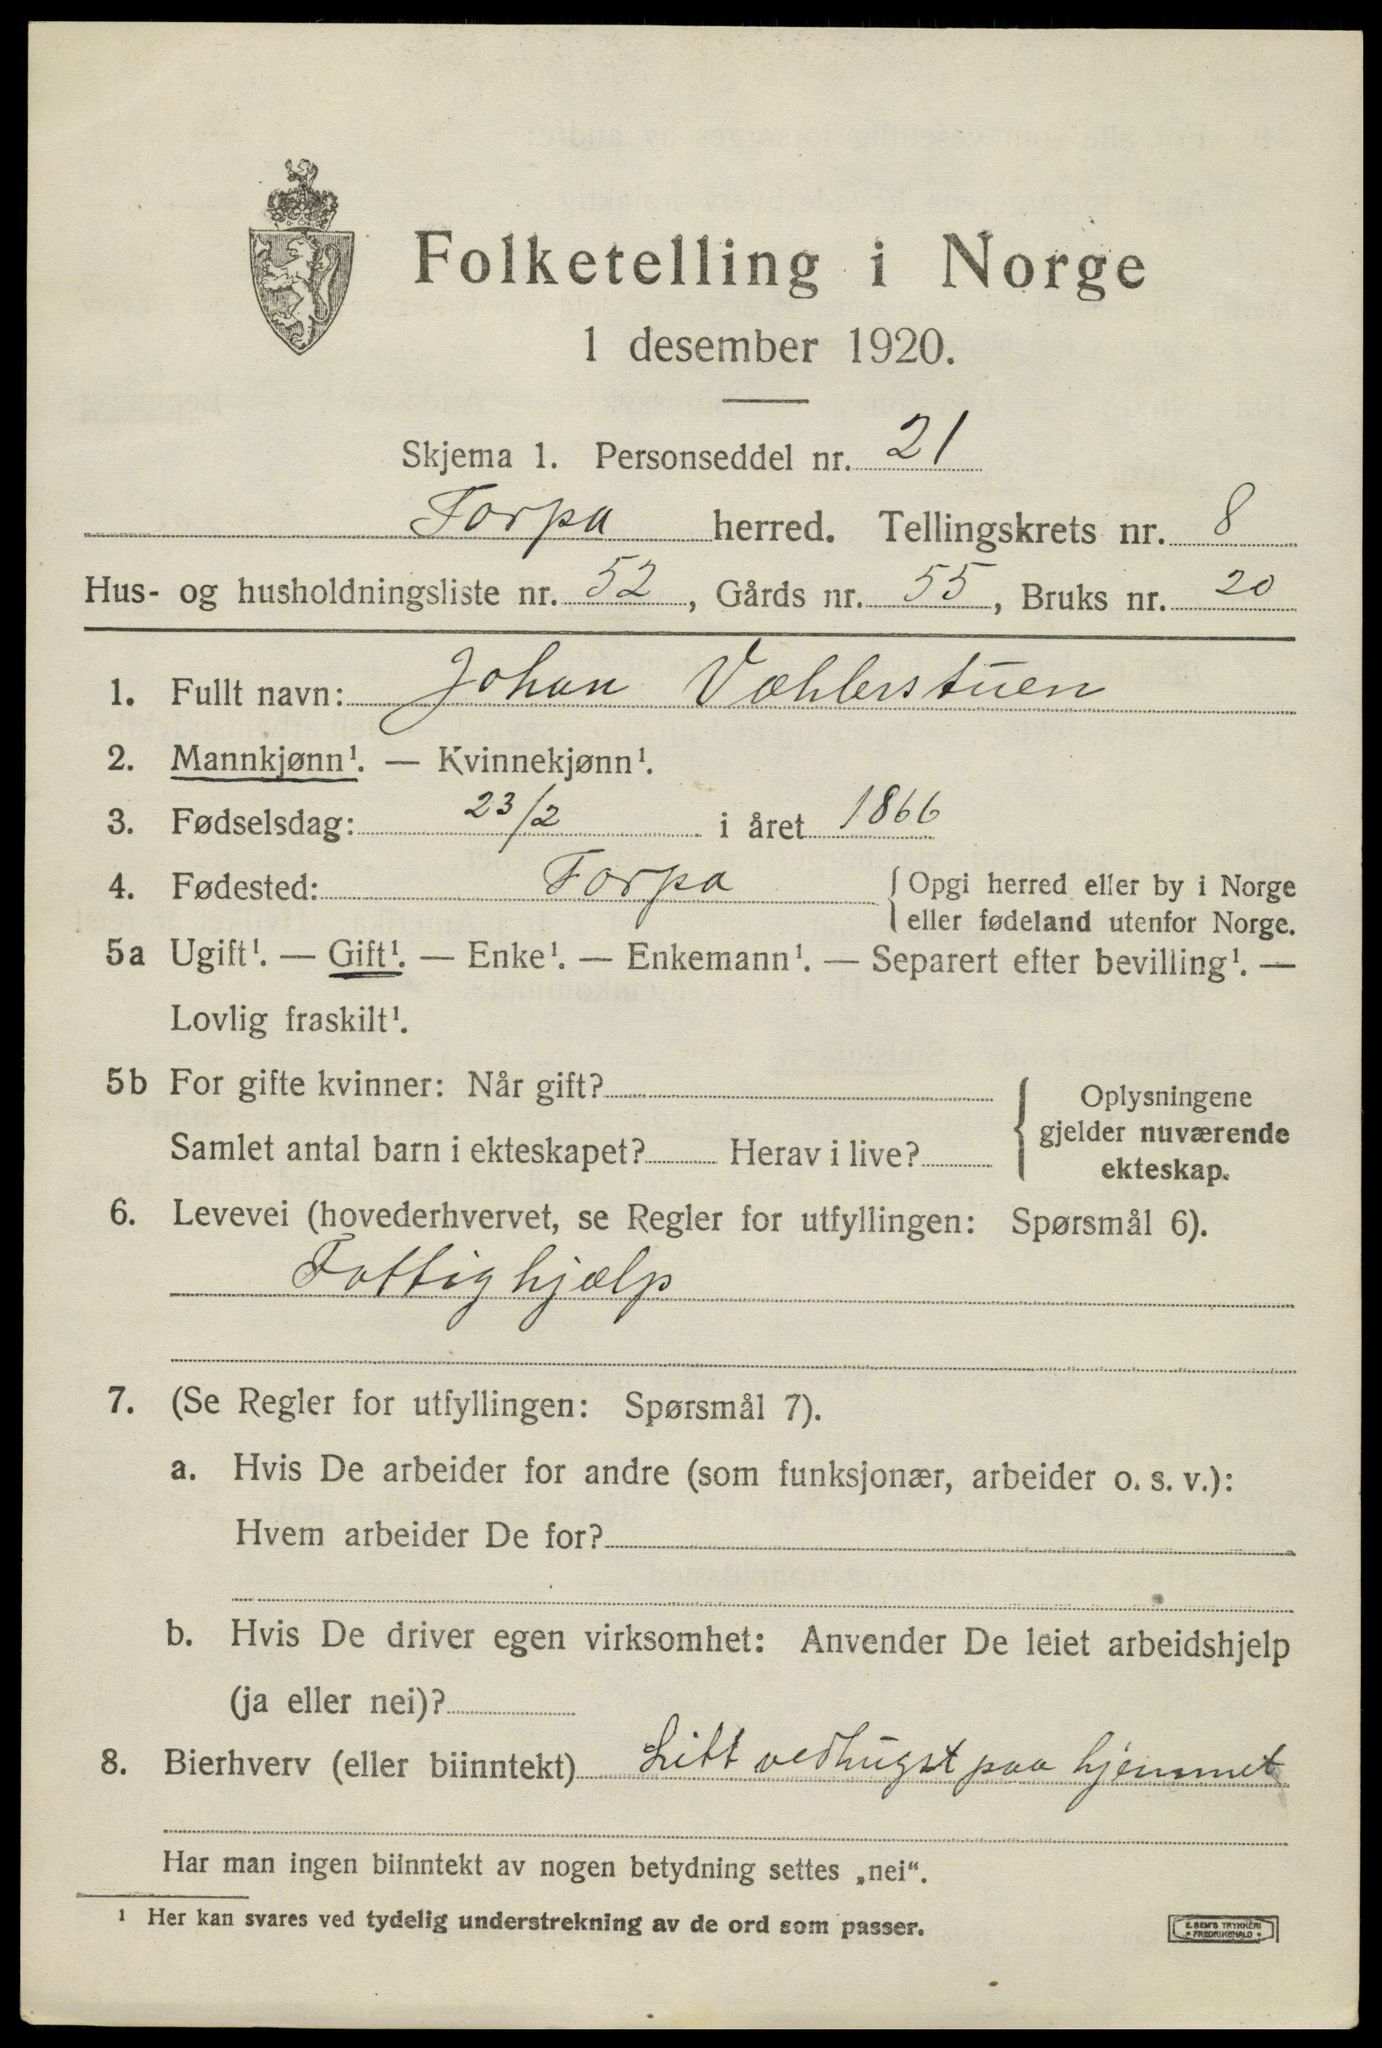 Folketelling i Norge
1 desember 1920.
Skjema 1. Personseddel nr. 21
Torpa herred. Tellingskrets nr. 8
Hus- og husholdningsliste nr. 52, Gårds nr. 55, Bruks nr. 20
1. Fullt navn: Johan Væhlerstuen
2. Mannkjønn¹. — Kvinnekjønn¹.
3. Fødselsdag: 23/2 i året 1866
4. Fødested: Torpa {Opgi herred eller by i Norge
eller fødeland utenfor Norge.
5a Ugift¹. — Gift¹. — Enke¹. — Enkemann¹. — Separert efter bevilling¹. —
Lovlig fraskilt¹.
5b For gifte kvinner: Når gift?
Samlet antal barn i ekteskapet? Herav i live?
{Oplysningene
gjelder nuværende
ekteskap.
6. Levevei (hovederhvervet, se Regler for utfyllingen: Spørsmål 6).
Fattighjælp
7. (Se Regler for utfyllingen: Spørsmål 7).
a. Hvis De arbeider for andre (som funksjonær, arbeider o. s. v.):
Hvem arbeider De for?
b. Hvis De driver egen virksomhet: Anvender De leiet arbeidshjelp
(ja eller nei)?
8. Bierhverv (eller biinntekt) Litt vedhugst paa hjemmet
Har man ingen biinntekt av nogen betydning settes „nei“.
¹ Her kan svares ved tydelig understrekning av de ord som passer.
E. SEM'S TRYKKERI
• FREDRIKSHALD •